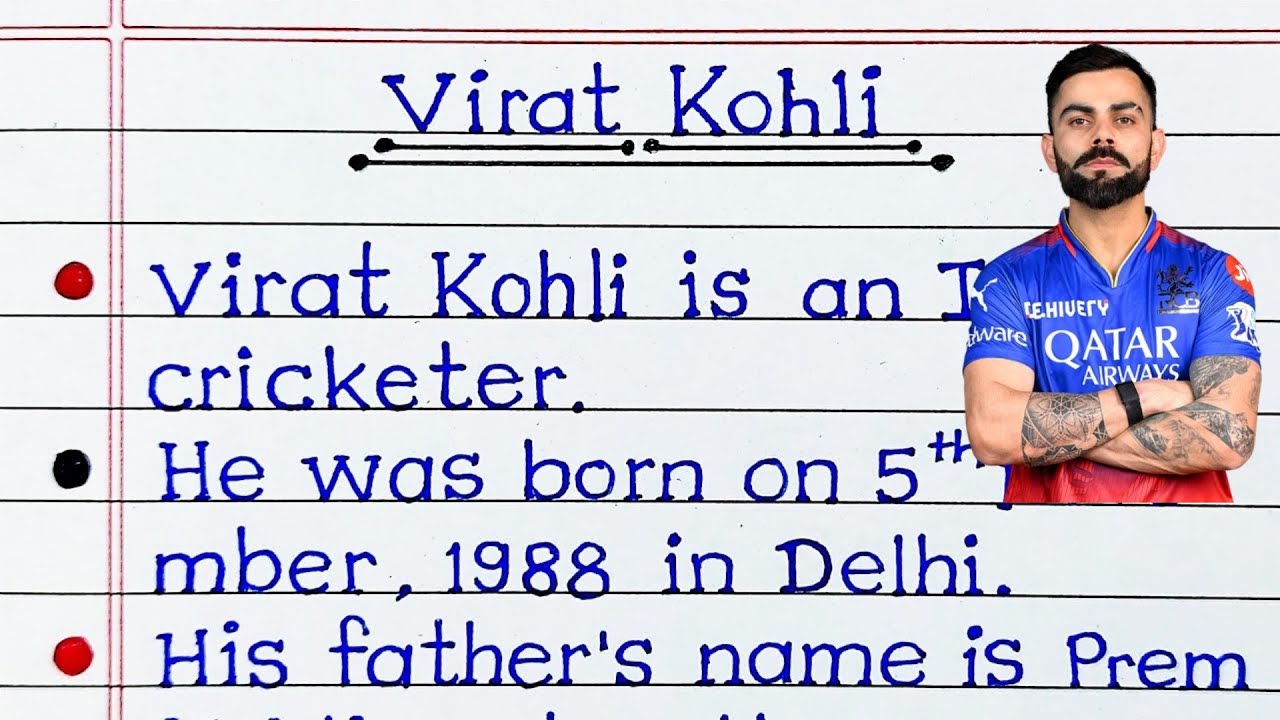 Virat Kohli
Virat Kohli is an
cricketer.
He was born on 5th
mber, 1988 in Delhi.
His father's name is Prem
QATAR
AIRWAYS